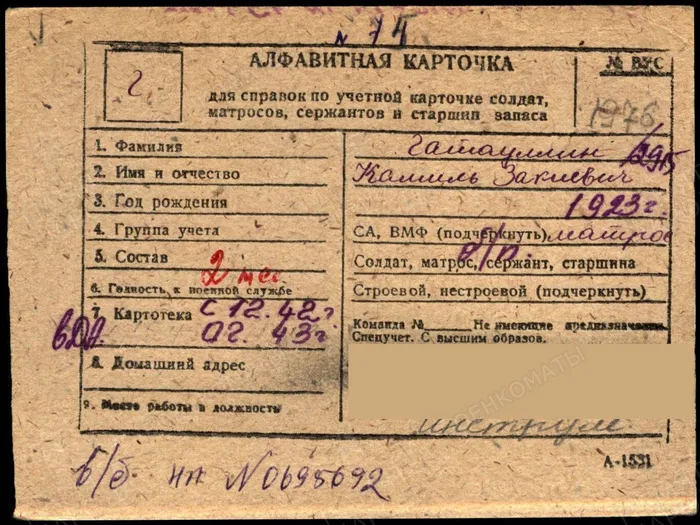 N 74
АЛФАВИТНАЯ КАРТОЧКА
№ ВУС
г
для справок по учетной карточке солдат,
матросов, сержантов и старшин запаса
1976
1. Фамилия Гатауллин /2915
2. Имя и отчество Камиль Закиевич
3. Год рождения 1923 г.
4. Группа учета СА, ВМФ (подчеркнуть) матрос
5. Состав Солдат, матрос, сержант, старшина
2 мес
6. Годность к военной службе Строевой, нестроевой (подчеркнуть)
7. Картотека с 12.42 г.
02. 43 г
Команда № Не имеющие предназначения
Спецучет. С высшим образов.
8. Домашний адрес
ВОЕНКОМАТЫ
9. Место работы и должность
инструм.
А-1531
в/б НП N 0695692